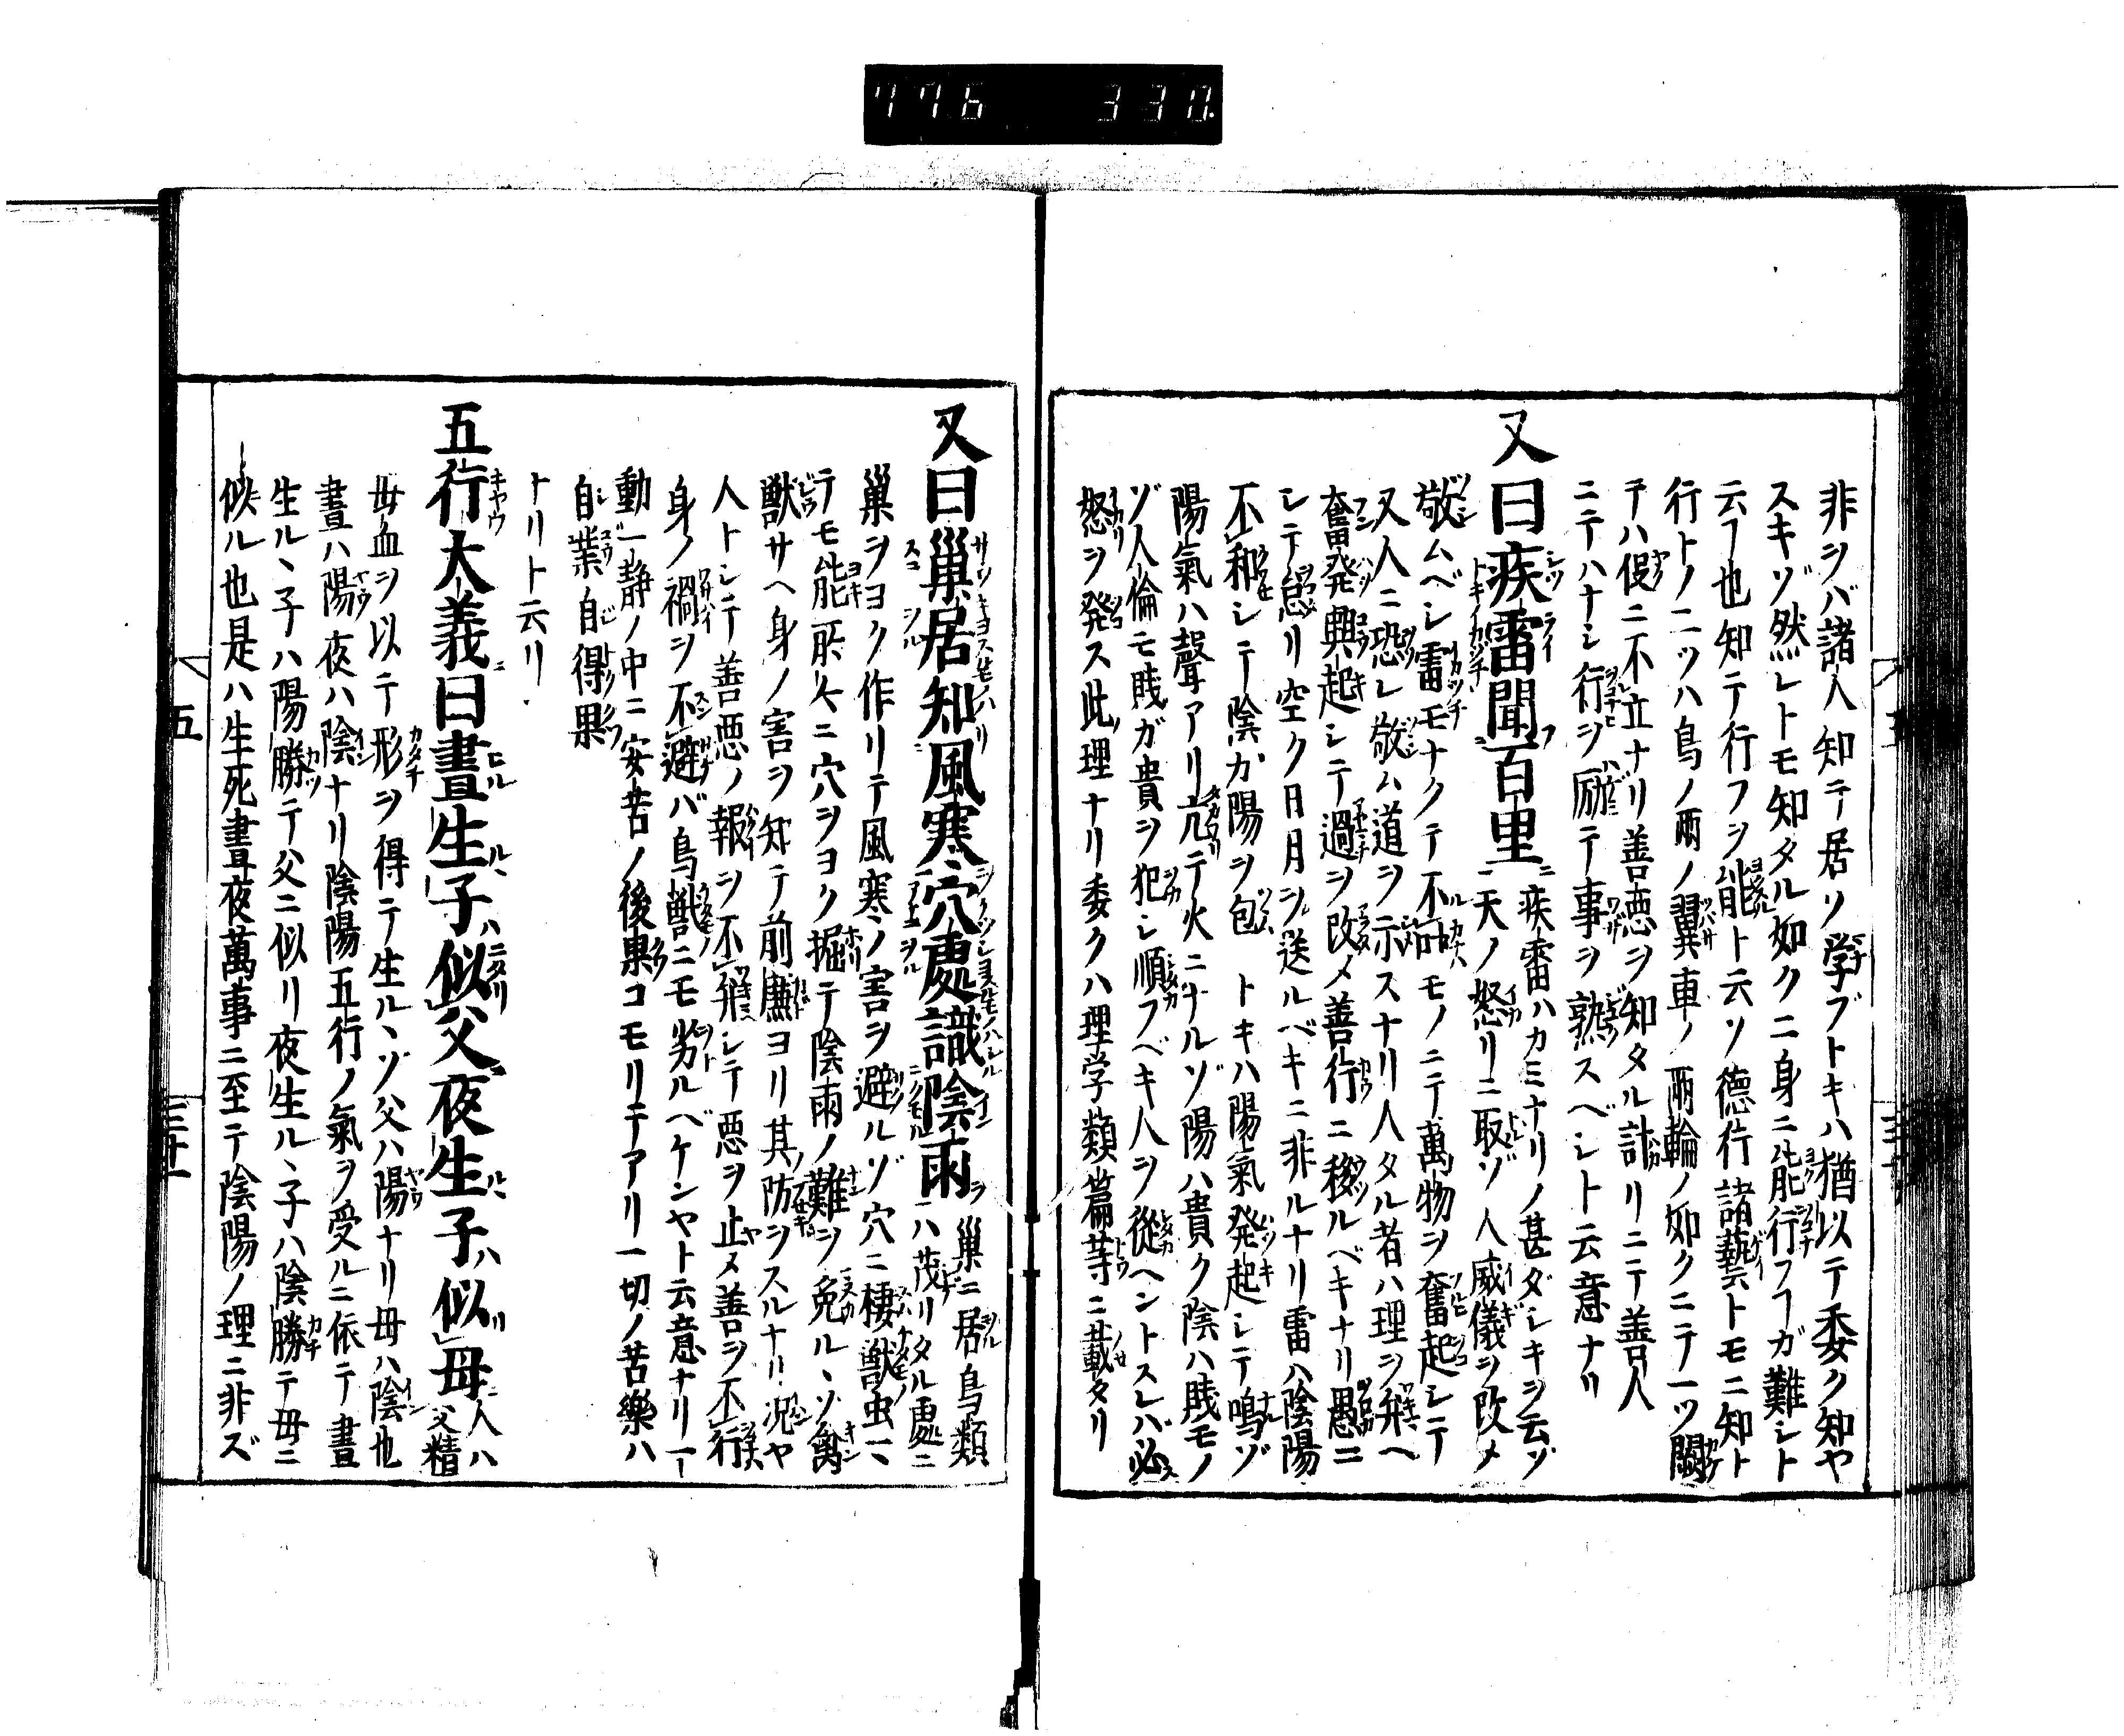 776 330
非シバ諸人知テ居ソ学ブトキハ猶以テ委ク知ヤ
スキゾ然レトモ知タル如クニ身ニ能行フヿガ難シト
云フ也知テ行フヲ能ト云ソ徳行諸藝トモニ知ト
行トノ二ツハ鳥ノ兩ノ翼車ノ兩輪ノ如クニテ一ツ闕
テハ假ニ不立ナリ善悪ヲ知タル計リニテ善人
ニテハナシ行ヲ励テ事ヲ熟スベシト云意ナリ
又曰疾雷聞百里 疾雷ハカミナリノ甚ダシキヲ云ゾ
天ノ怒リニ取ゾ人威儀ヲ改メ
敬ムベシ雷モナクテ不叶モノニテ萬物ヲ奮起シテ
又人ニ恐レ敬ム道ヲ示スナリ人タル者ハ理ヲ辨ヘ
奮発興起シテ過ヲ改メ善行ニ移ルベキナリ愚ニ
シテ怠リ空ク日月ヲ送ルベキニ非ルナリ雷ハ陰陽
不和シテ陰カ陽ヲ包トキハ陽氣発起シテ鳴ゾ
陽氣ハ聲アリ亢テ火ニナルゾ陽ハ貴ク陰ハ賎モノ
ゾ人倫モ賎ガ貴ヲ犯シ順フベキ人ヲ從ヘントスレバ必
怒ヲ発ス此理ナリ委クハ理学類篇等ニ載タリ
又曰巢居知風寒穴處識陰雨 巢ニ居鳥類
ハ茂リタル處ニ
巢ヲヨク作リテ風寒ノ害ヲ避ルゾ穴ニ棲獣虫ハ
テモ能所々ニ穴ヲヨク掘テ陰雨ノ難ヲ免ルヽソ禽
獣サヘ身ノ害ヲ知テ前廉ヨリ其防ヲスルナリ況ヤ
人トシテ善悪ノ報ヲ不辨シテ悪ヲ止メ善ヲ不行
身ノ禍ヲ不避バ鳥獣ニモ劣ルベケンヤト云意ナリ一
動一静ノ中ニ安苦ノ後果コモリテアリ一切ノ苦樂ハ
自業自得果
トリト云リ
五行大義曰晝生子似父夜生子似母 人ハ
父精
母血ヲ以テ形ヲ得テ生ルヽゾ父ハ陽ナリ母ハ陰也
晝ハ陽夜ハ陰ナリ陰陽五行ノ氣ヲ受ルニ依テ晝
生ルヽ子ハ陽勝テ父ニ似リ夜生ルヽ子ハ陰勝テ母ニ
似ル也是ハ生死晝夜萬事ニ至テ陰陽ノ理ニ非ズ
五
三十一